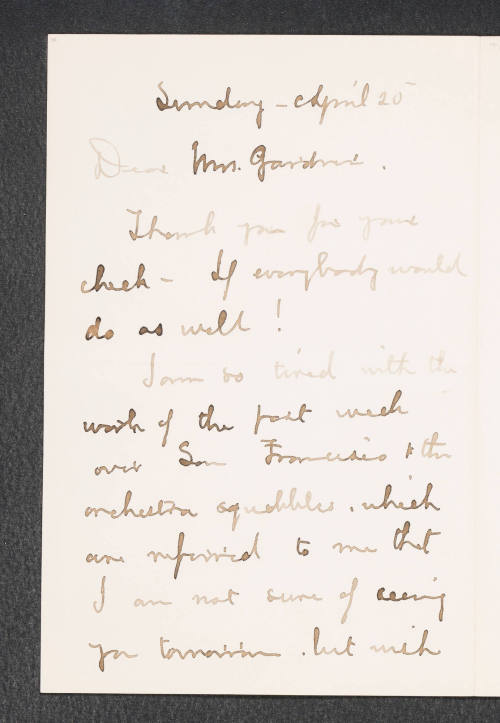 Sunday - April 25
Dear Mrs. Gardner.
Thank you for your
check - If everybody would
do as well!
I am so tired with the
work of the past week
over San Francisco & the
orchestra squabbles, which
are referred to me that
I am not sure of seeing
you tomorrow. but wish